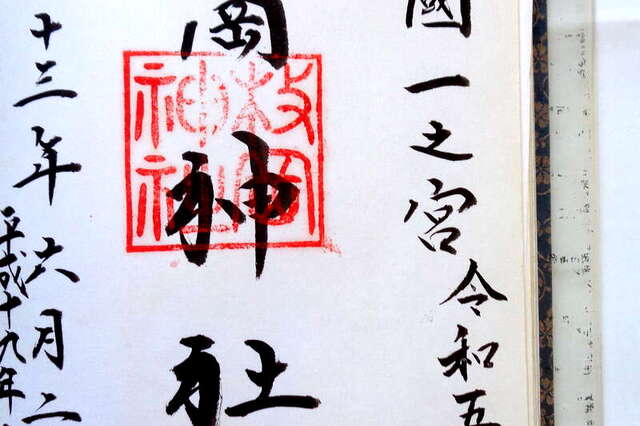 國一之宮
令和五
岡神社
枚岡
神社
十三年六月二
平成十九年